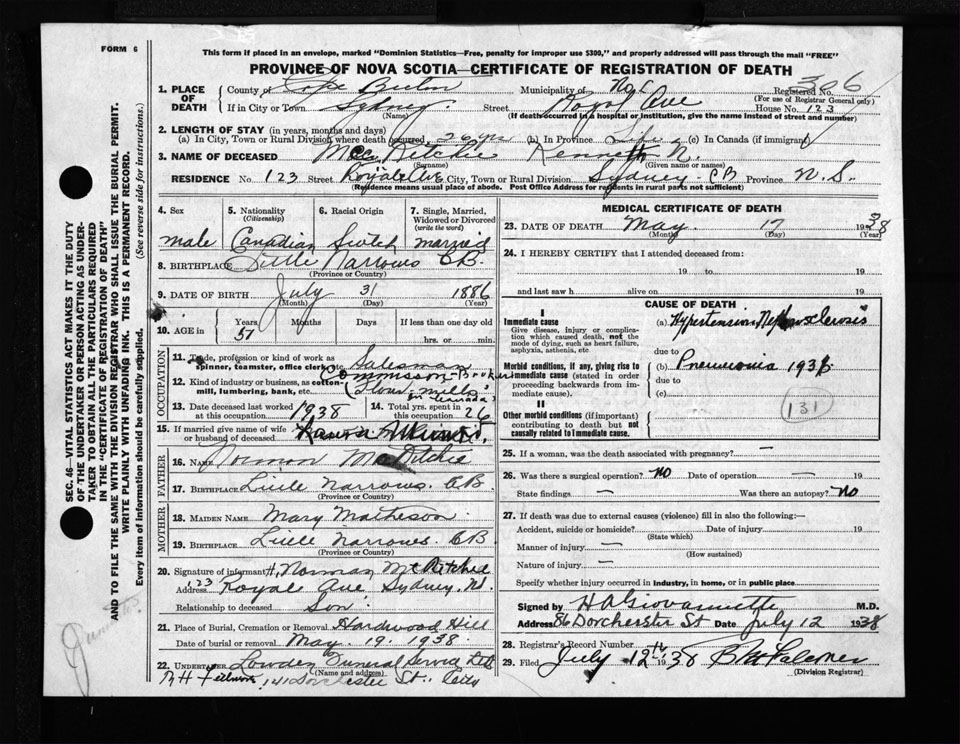 FORM 6
This form if placed in an envelope, marked "Dominion Statistics—Free, penalty for improper use $300," and properly addressed will pass through the mail "FREE"
PROVINCE OF NOVA SCOTIA—CERTIFICATE OF REGISTRATION OF DEATH
1. PLACE OF DEATH
County of Cape Breton Municipality of Registered No. 306
(For use of Registrar General only)
If in City or Town Sydney Street Royal Ave House No. 123
(Name) (If death occurred in a hospital or institution, give the name instead of street and number)
2. LENGTH OF STAY (in years, months and days)
(a) In City, Town or Rural Division where death occurred 26 yrs (b) In Province Life (c) In Canada (if immigrant)
3. NAME OF DECEASED MacRitchie Kenneth N.
(Surname) (Given name or names)
RESIDENCE No. 123 Street Royal Ave City, Town or Rural Division Sydney CB Province N.S.
(Residence means usual place of abode. Post Office Address for residents in rural parts not sufficient)
4. Sex 5. Nationality (Citizenship) 6. Racial Origin 7. Single, Married, Widowed or Divorced (write the word)
male Canadian Scotch married
8. BIRTHPLACE Little Narrows CB.
(Province or Country)
9. DATE OF BIRTH July 31 1886
(Month) (Day) (Year)
10. AGE in Years Months Days If less than one day old
51 hrs. or min.
OCCUPATION
11. Trade, profession or kind of work as spinner, teamster, office clerk, etc. Salesman
12. Kind of industry or business, as cotton-mill, lumbering, bank, etc. Commission-Broker
(Flour Mills in Canada)
13. Date deceased last worked at this occupation 1938 14. Total yrs. spent in this occupation 26
15. If married give name of wife or husband of deceased
FATHER
16. NAME Norman McRitchie
17. BIRTHPLACE Little Narrows. CB.
(Province or Country)
MOTHER
18. MAIDEN NAME Mary Matheson
19. BIRTHPLACE Little Narrows. CB
(Province or Country)
20. Signature of informant Norman McRitchie
Address 123 Royal Ave, Sydney, N.
Relationship to deceased Son
21. Place of Burial, Cremation or Removal Hardwood Hill
Date of burial or removal May 19. 1938
22. UNDERTAKER Lowden Funeral Service Ltd
(Name and address)
141 Dorchester St. City
MEDICAL CERTIFICATE OF DEATH
23. DATE OF DEATH May 17 1938
(Month) (Day) (Year)
24. I HEREBY CERTIFY that I attended deceased from:
19 to 19
and last saw h alive on 19
CAUSE OF DEATH
I
Immediate cause
Give disease, injury or complication which caused death, not the mode of dying, such as heart failure, asphyxia, asthenia, etc
(a) Hypertension Nephrosclerosis
due to
Morbid conditions, if any, giving rise to immediate cause (stated in order proceeding backwards from immediate cause).
(b) Pneumonia 193
due to
(c)
131
II
Other morbid conditions (if important) contributing to death but not causally related to immediate cause.
25. If a woman, was the death associated with pregnancy? —
26. Was there a surgical operation? No Date of operation — 19
State findings — Was there an autopsy? No
27. If death was due to external causes (violence) fill in also the following:—
Accident, suicide or homicide? — Date of injury — 19
(State which)
Manner of injury —
(How sustained)
Nature of injury —
Specify whether injury occurred in industry, in home, or in public place
Signed by H A Giovannetti M.D.
Address 86 Dorchester St Date July 12 1938
28. Registrar's Record Number
29. Filed July 12th 1938
(Division Registrar)
SEC. 46—VITAL STATISTICS ACT MAKES IT THE DUTY
OF THE UNDERTAKER OR PERSON ACTING AS UNDER-
TAKER TO OBTAIN ALL THE PARTICULARS REQUIRED
IN THE "CERTIFICATE OF REGISTRATION OF DEATH"
AND TO FILE THE SAME WITH THE DIVISION REGISTRAR WHO SHALL ISSUE THE BURIAL PERMIT.
WRITE PLAINLY WITH UNFADING INK. THIS IS A PERMANENT RECORD.
Every item of information should be carefully supplied. (See reverse side for instructions.)